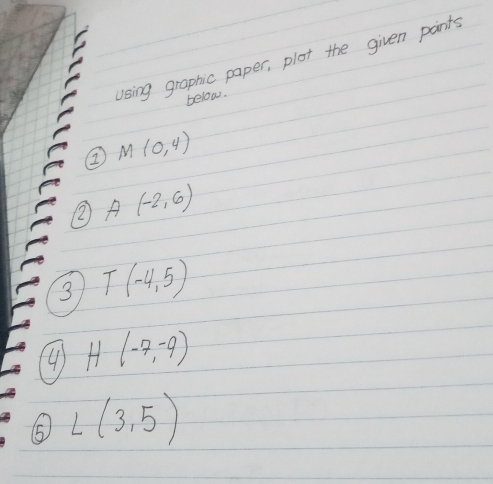 Using graphic paper, plot the given points
below.
① M (0,4)
② A (-2,6)
③ T (-4,5)
④ H (-7,-9)
⑤ L (3,5)